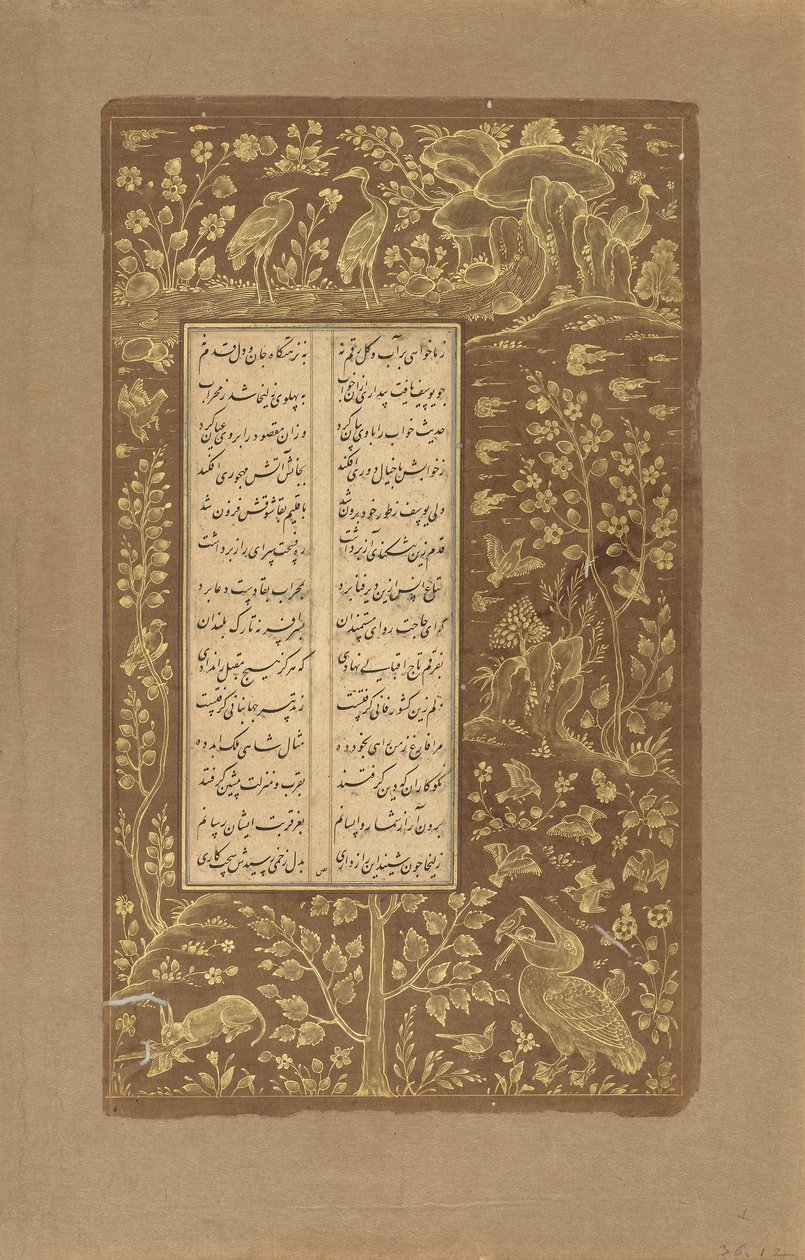 ز ما خواهی بر آب و گل رقم نه به نزهتگاه جان و دل قدم نه
چو یوسف یافت بیداری از آن خواب به پهلوی زلیخا شد ز محراب
حدیث خواب را با وی بیان کرد وزان مقصود را بر وی عیان کرد
زخوابش با خیال دوری افکند بجانش آتش مهجوری افکند
ولی یوسف ز طور خود برون شد باقلیم بقا شوقش فزون شد
قدم زین تنگنای آز برداشت ره فسحت سرای راز برداشت
متاع انس ازین دیر فنا برد بمحراب بقا دست دعا برد
کای حاجت روای مستمندان بسر افسر نه تارک بلندان
بفرقم تاج اقبالی نهادی که هرگز هیچ مقبل را ندادی
دلم زین کشور فانی گرفتست ز تدبیر جهانبانی گرفتست
مرا فارغ ز من راهی بخود ده مثال شاهی ملک ابد ده
نکوکاران که دین گرفتند بقرب و منزلت پیشین گرفتند
برون آر از شمار واپسانم بعز قربت ایشان رسانم
زلیخا چون شنید این رازداری بدل زخمی رسیدش سخت کاری
36.12